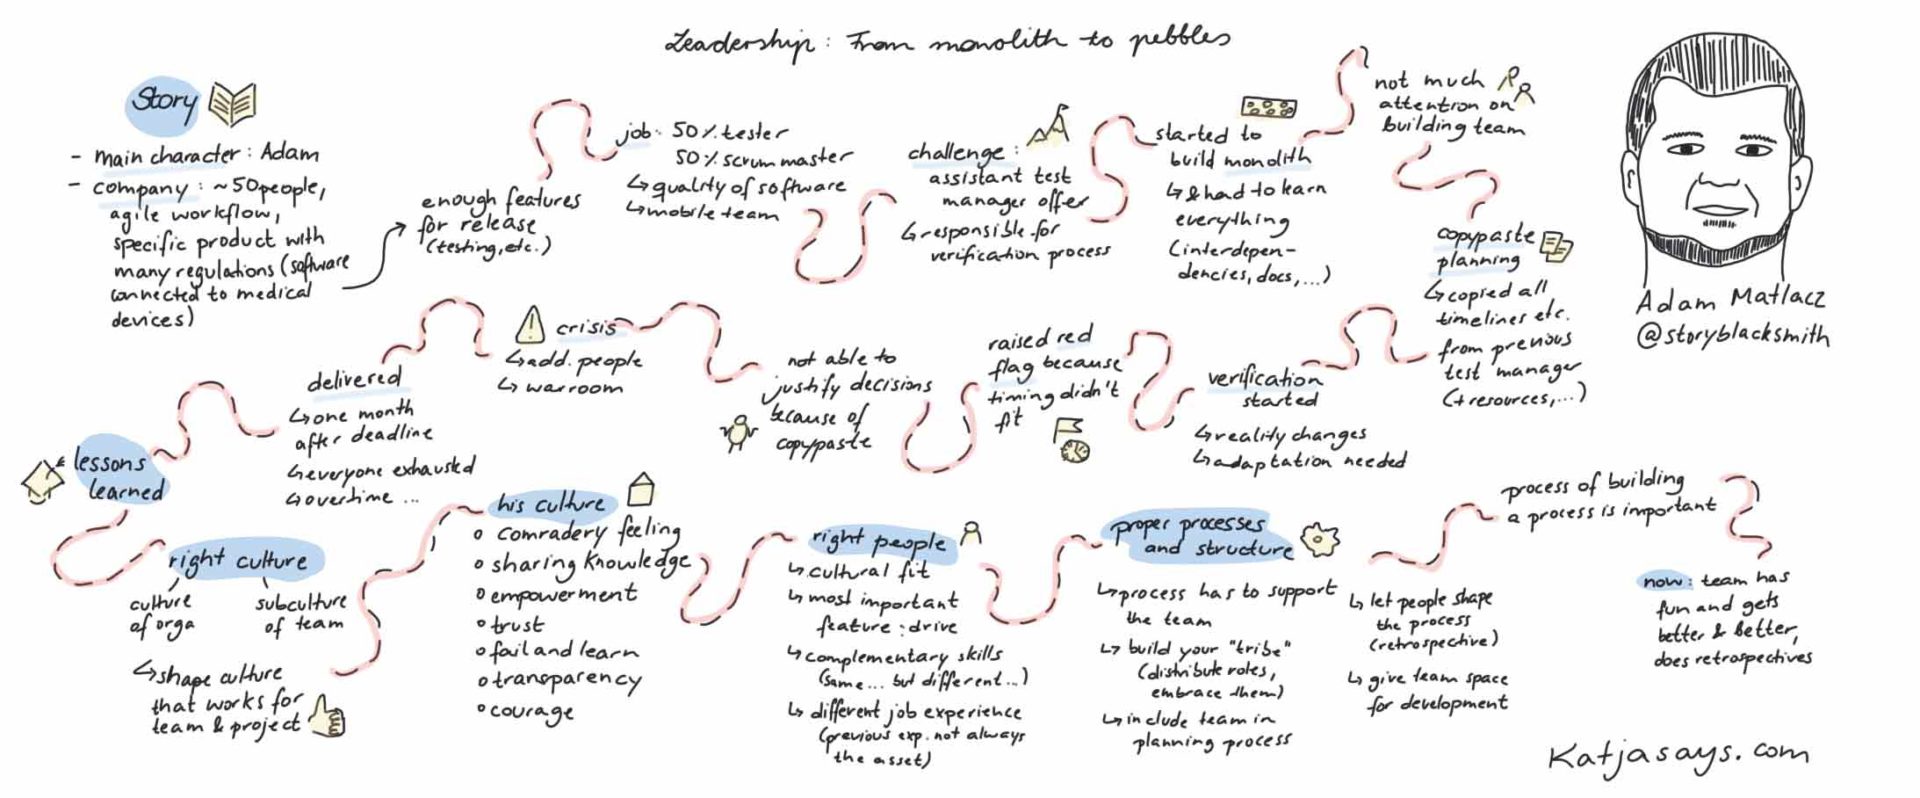 Leadership: From monolith to pebbles
Story
- main character: Adam
- company: ~50people,
agile workflow,
specific product with
many regulations (software
connected to medical
devices)
enough features
for release
(testing, etc.)
job: 50% tester
50% scrum master
↳ quality of software
↳ mobile team
challenge:
assistant test
manager offer
↳ responsible for
verification process
started to
build monolith
↳ & had to learn
everything
(interdepen-
dencies, docs, ...)
not much
attention on
building team
copypaste
planning
↳ copied all
timelines etc.
from previous
test manager
(+ resources, ...)
Adam Matlacz
@storyblacksmith
verification
started
↳ reality changes
↳ adaptation needed
raised red
flag because
timing didn't
fit
not able to
justify decisions
because of
copypaste
crisis
↳ add. people
↳ warroom
delivered
↳ one month
after deadline
↳ everyone exhausted
↳ overtime ...
lessons
learned
right culture
culture
of orga
subculture
of team
↳ shape culture
that works for
team & project
his culture
o comradery feeling
o sharing knowledge
o empowerment
o trust
o fail and learn
o transparency
o courage
right people
↳ cultural fit
↳ most important
feature: drive
↳ complementary skills
(same... but different...)
↳ different job experience
(previous exp. not always
the asset)
proper processes
and structure
↳ process has to support
the team
↳ build your "tribe"
(distribute roles,
embrace them)
↳ include team in
planning process
↳ let people shape
the process
(retrospective)
↳ give team space
for development
process of building
a process is important
now: team has
fun and gets
better & better,
does retrospectives
Katjasays.com